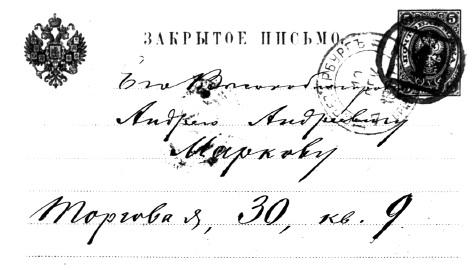 ЗАКРЫТОЕ ПИСЬМО.
5
Его Высокоблагородію
Андрею Андреевичу
Маркову
Торговая, 30, кв. 9